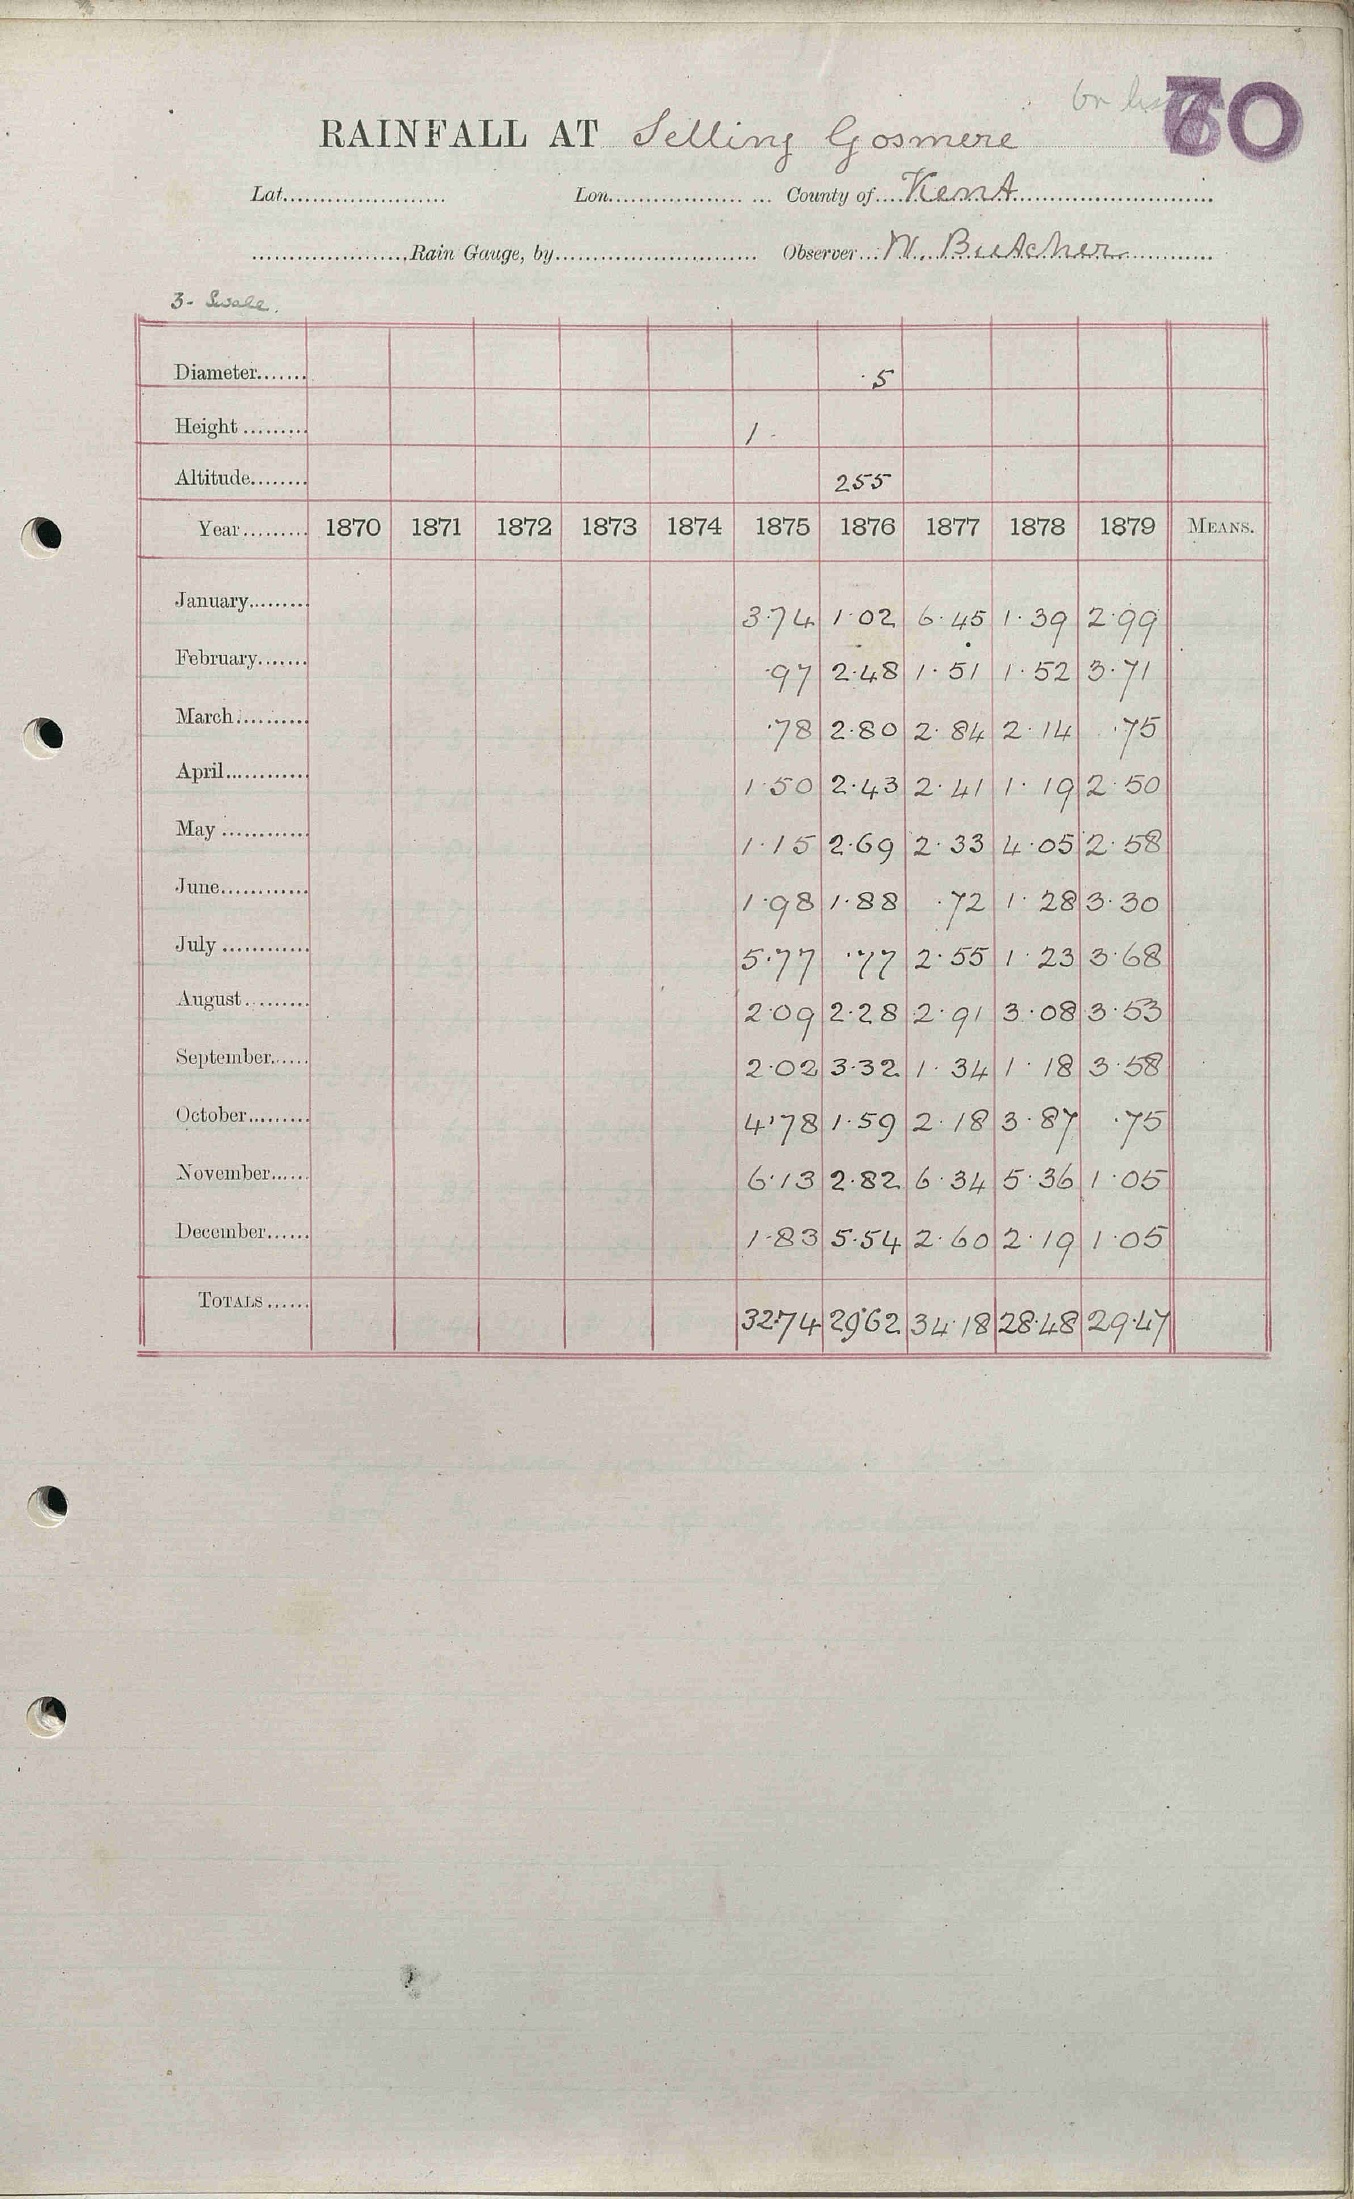 70
RAINFALL AT Selling Gosmere
Lat...................... Lon.................. ... County of....Kent...........................
......................Rain Gauge, by............................ Observer...W. Butcher............
3- Swale.
Diameter....... 5
Height ......... 1
Altitude........ 255
Year......... 1870 1871 1872 1873 1874 1875 1876 1877 1878 1879 MEANS.
January......... 3.74 1.02 6.45 1.39 2.99
February....... .97 2.48 1.51 1.52 3.71
March.......... .78 2.80 2.84 2.14 .75
April............ 1.50 2.43 2.41 1.19 2.50
May ............ 1.15 2.69 2.33 4.05 2.58
June............ 1.98 1.88 .72 1.28 3.30
July ............ 5.77 .77 2.55 1.23 3.68
August......... 2.09 2.28 2.91 3.08 3.53
September...... 2.02 3.32 1.34 1.18 3.58
October......... 4.78 1.59 2.18 3.87 .75
November...... 6.13 2.82 6.34 5.36 1.05
December...... 1.83 5.54 2.60 2.19 1.05
TOTALS...... 32.74 29.62 34.18 28.48 29.47